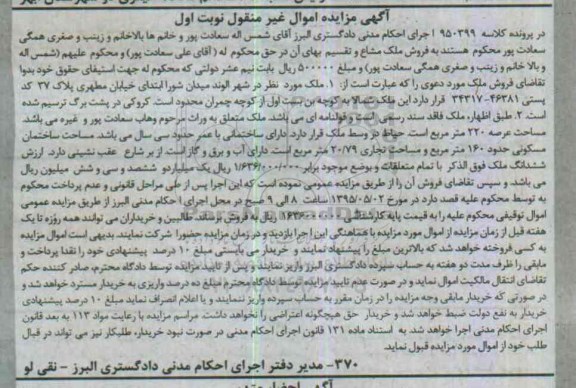 آگهی مزایده اموال غیر منقول نوبت اول
در پرونده کلاسه ۹۵۰۳۹۹ اجرای احکام مدنی دادگستری البرز آقای شمس اله سعادت پور و خانم ها بالاخانم و زینب و صفری همگی
سعادت پور محکوم هستند به فروش ملک مشاع و تقسیم بهای آن در حق محکوم له ( آقای علی سعادت پور) و محکوم علیهم (شمس اله
و بالا خانم و زینب و صفری همگی سعادت پور) و مبلغ ۵۰۰۰۰۰ ریال بابت نیم عشر دولتی که محکوم له جهت استیفای حقوق خود بدوا
تقاضای فروش ملک مورد دعوی را که عبارت است از: ۱. ملک مورد نظر در شهر الوند میدان شورا ابتدای خیابان مطهری پلاک ۳۷ کد
پستی ۴۶۳۸۱-۳۴۳۱۷ قرار دارد این ملک شمالا به کوچه بن بست اول از کوچه چمران محدود است. کروکی در پشت برگ ترسیم شده
است ۲. طبق اظهار، ملک فاقد سند رسمی است و قولنامه ای می باشد. ملک متعلق به وراث مرحوم وهاب سعادت پور و غیره می باشد.
مساحت عرصه ۲۲۰ متر مربع است. حیاط در وسط ملک قرار دارد. دارای ساختمانی با عمر حدود سی سال می باشد. مساحت ساختمان
مسکونی حدود ۱۶۰ متر مربع و مساحت تجاری ۲۰/۷۹ متر مربع است. دارای آب و برق و گاز است. از بر شارع عقب نشینی دارد. ارزش
ششدانگ ملک فوق الذکر با تمام متعلقات و بوضع موجود برابر ۱/۶۳۶/۰۰۰/۰۰۰ ریال یک میلیارد و ششصد و سی و شش میلیون ریال
می باشد و سپس تقاضای فروش آن را از طریق مزایده عمومی نموده است که این اجرا پس از طی مراحل قانونی و عدم پرداخت محکوم
به توسط محکوم علیه قصد دارد در مورخ ۱۳۹۵/۰۵/۰۲ ساعت ۸ الی ۹ صبح در محل اجرای احکام مدنی البرز از طریق مزایده عمومی
اموال توقیفی محکوم علیه را به قیمت پایه کارشناسی ریال به فروش رساند. طالبین و خریداران می توانند همه روزه تا یک
هفته قبل از زمان مزایده از اموال مورد مزایده با هماهنگی این اجرا بازدید و در زمان مزایده حضورا شرکت نمایند. بدیهی است اموال مزایده
به کسی فروخته خواهد شد که بالاترین مبلغ را پیشنهاد نمایند و خریدار می بایستی مبلغ ۱۰ درصد پیشنهادی خود را نقدا پرداخت و
مابقی را ظرف مدت دو هفته به حساب سپرده دادگستری البرز واریز نمایند و پس از تایید مزایده توسط دادگاه محترم، صادر کننده حکم
تقاضای انتقال مالکیت اموال نماید و در صورت عدم تایید مزایده توسط دادگاه محترم مبلغ ده درصد واریزی به خریدار مسترد خواهد شد و
در صورتی که خریدار مابقی وجه مزایده را در زمان مقرر به حساب سپرده واریز ننمایند و یا اعلام انصراف نماید مبلغ ۱۰ درصد پیشنهادی
خریدار به نفع دولت ضبط خواهد شد و خریدار حق هیچگونه اعتراضی را نخواهد داشت. مراسم مزایده با رعایت مواد ۱۱۳ به بعد قانون
اجرای احکام مدنی اجرا خواهد شد. به استناد ماده ۱۳۱ قانون اجرای احکام مدنی در صورت نبود خریدار، طلبکار نیز می تواند در قبال
طلب خود از اموال مورد مزایده قبول نماید.
۳۷۰- مدیر دفتر اجرای احکام مدنی دادگستری البرز - نقی لو